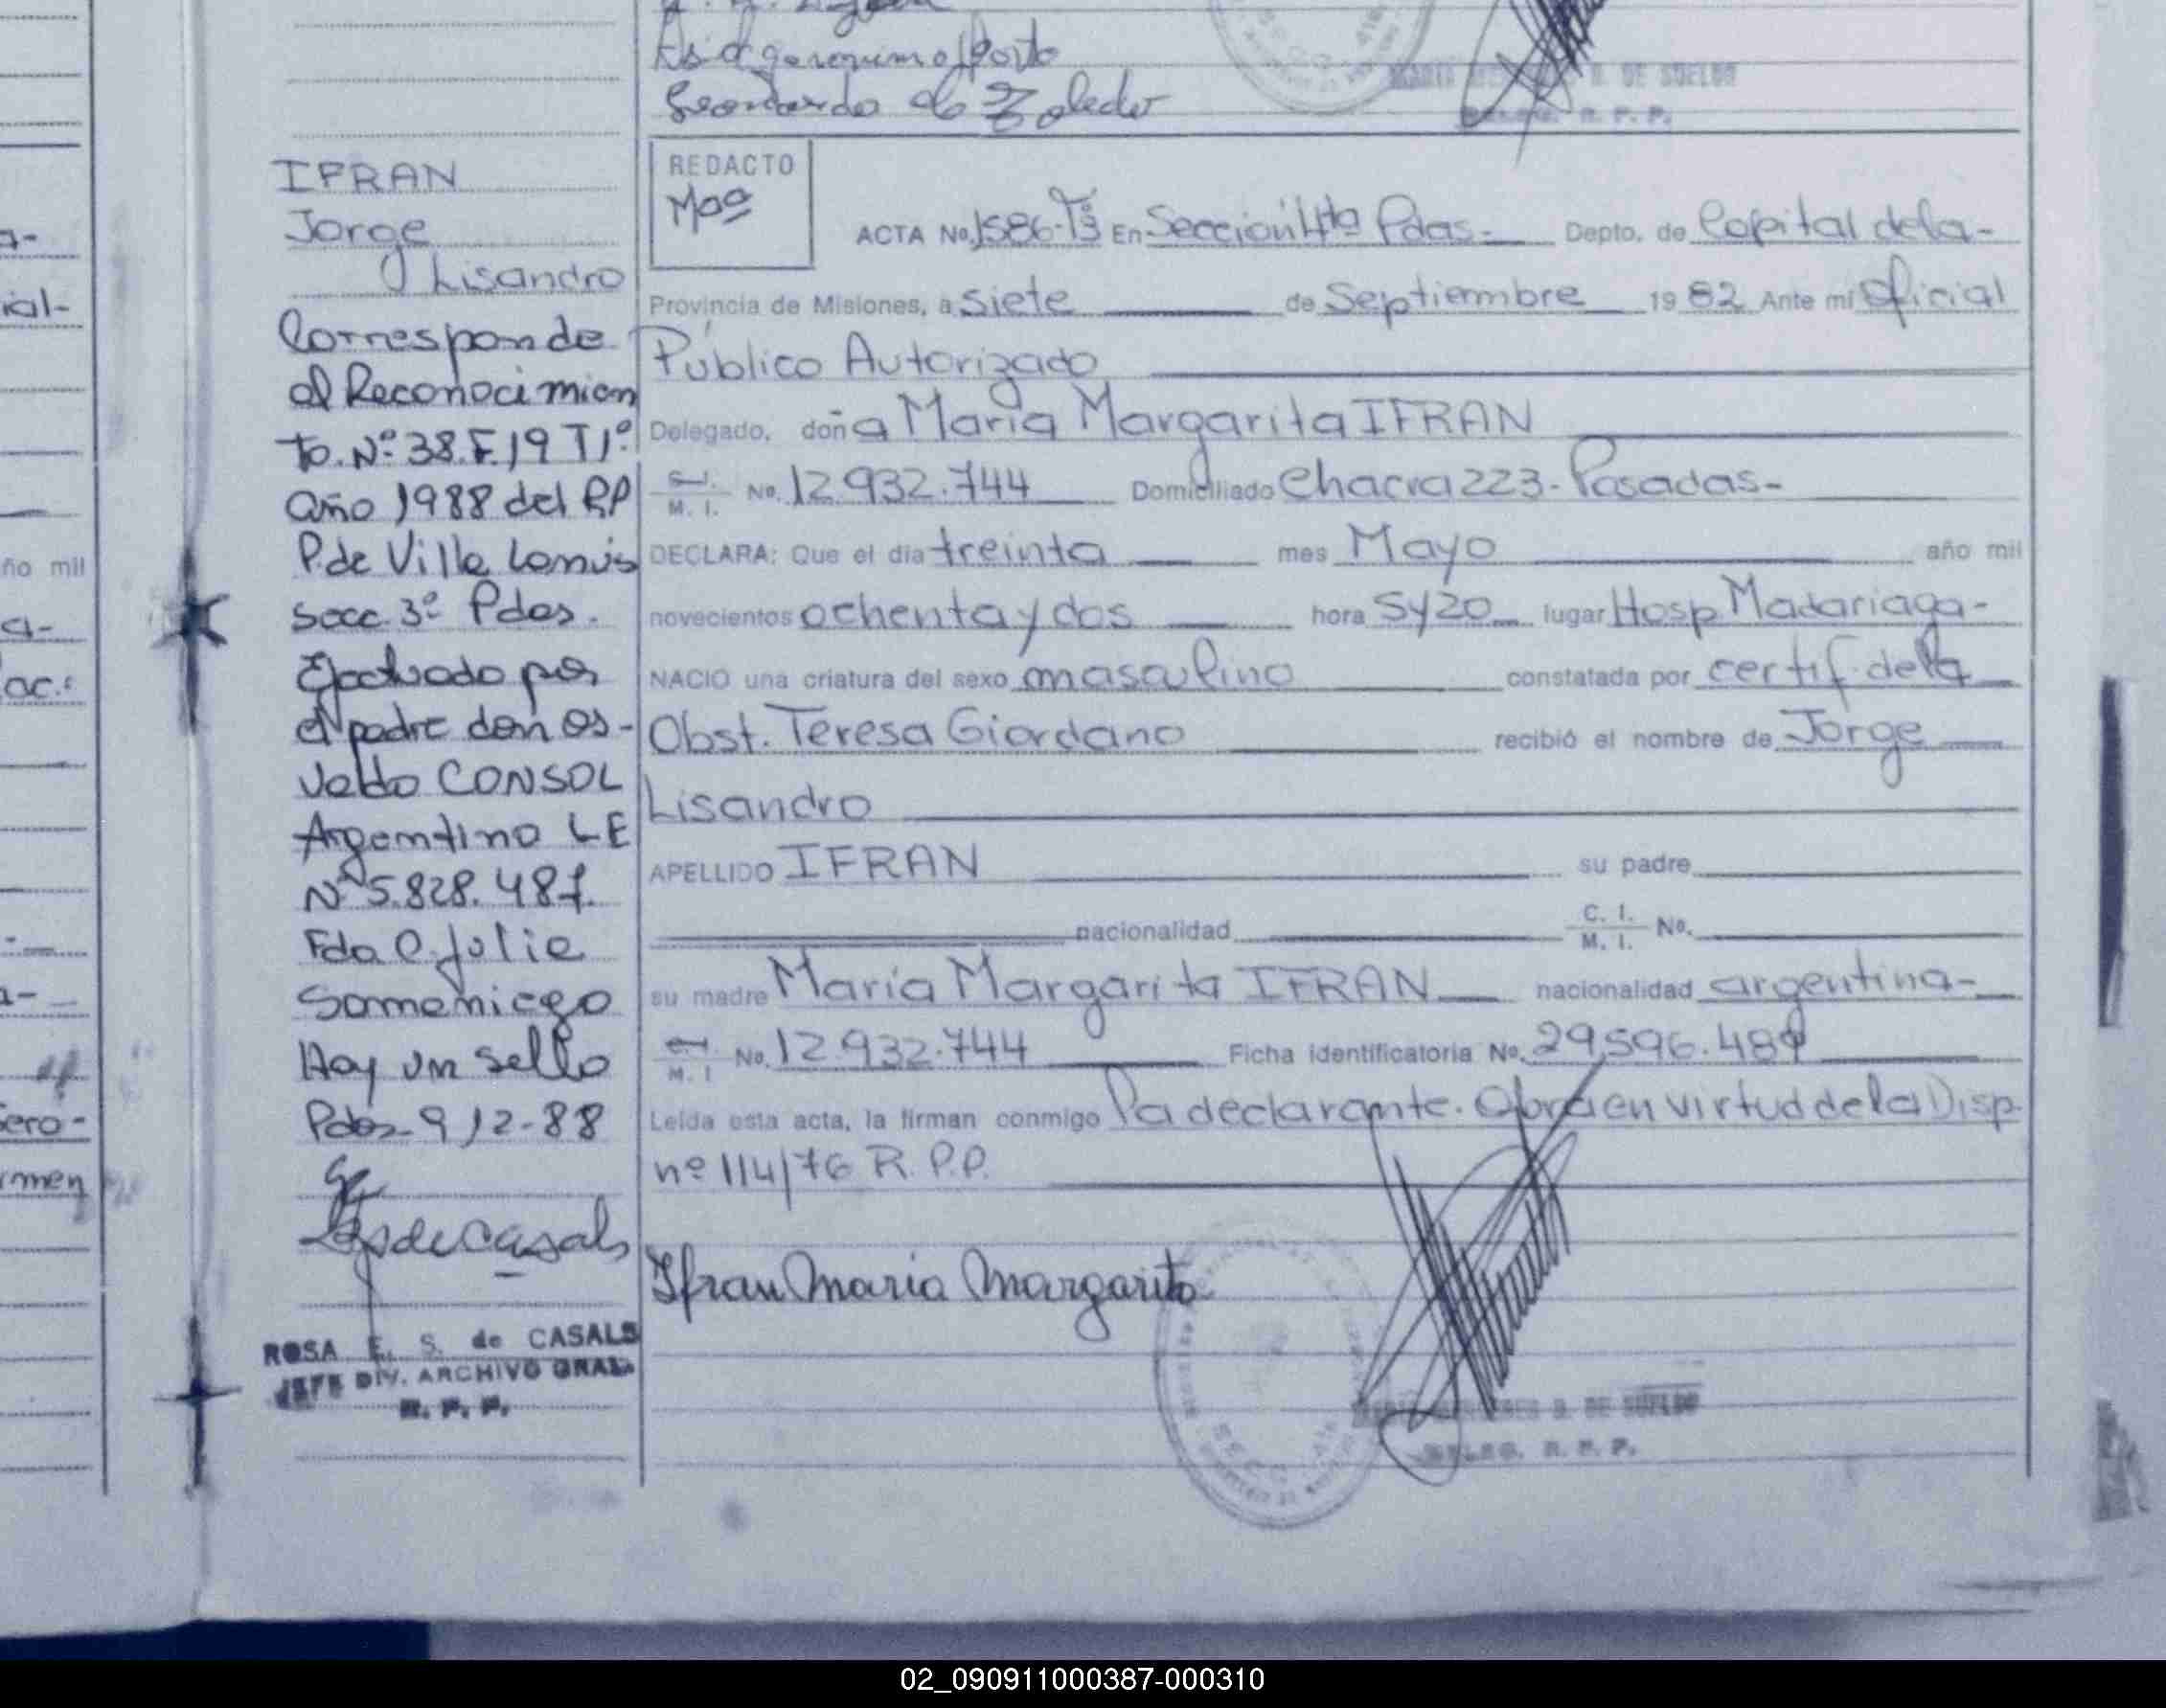 Leonardo de Toledo
DE SUELDO
R. P. P.
IFRAN
Jorge
Lisandro
Corresponde
al Reconocimien
to. Nº 38. F. 19 T1º
año 1988 del RP
P. de Villa Lanús
Secc. 3ª Pdas.
Efectuado por
el padre don Os-
valdo CONSOL
Argentino LE
Nº 5.828.487.
Fdo C. Julie
Samaniego
Hay un sello
Pdas 9/2-88
ROSA E. S. de CASALS
JEFE DIV. ARCHIVO GRAL.
R. P. P.
REDACTO
ACTA No. 1586-Tº3 En Sección 4ta Pdas.- Depto. de Capital de la-
Provincia de Misiones, a siete de Septiembre 1982 Ante mi Oficial
Público Autorizado
Delegado, doña María Margarita IFRAN
M. I. No. 12.932.744 Domiciliado Chacra 223- Posadas-
DECLARA: Que el día treinta mes Mayo año mil
novecientos ochenta y dos hora 5y20 lugar Hosp Madariaga-
NACIO una criatura del sexo masculino constatada por certif. de la
Obst. Teresa Giordano recibió el nombre de Jorge
Lisandro
APELLIDO IFRAN su padre
nacionalidad C. I. M. I. No.
su madre María Margarita IFRAN nacionalidad argentina-
M. I No. 12.932.744 Ficha identificatoria No. 29.596.489
Leída esta acta, la firman conmigo la declarante. Obra en virtud de la Disp.
nº 114/76 R. P.P.
Ifran Maria Margarita
DE SUELDO
DELEG. R. P. P.
ño mil
02_090911000387-000310